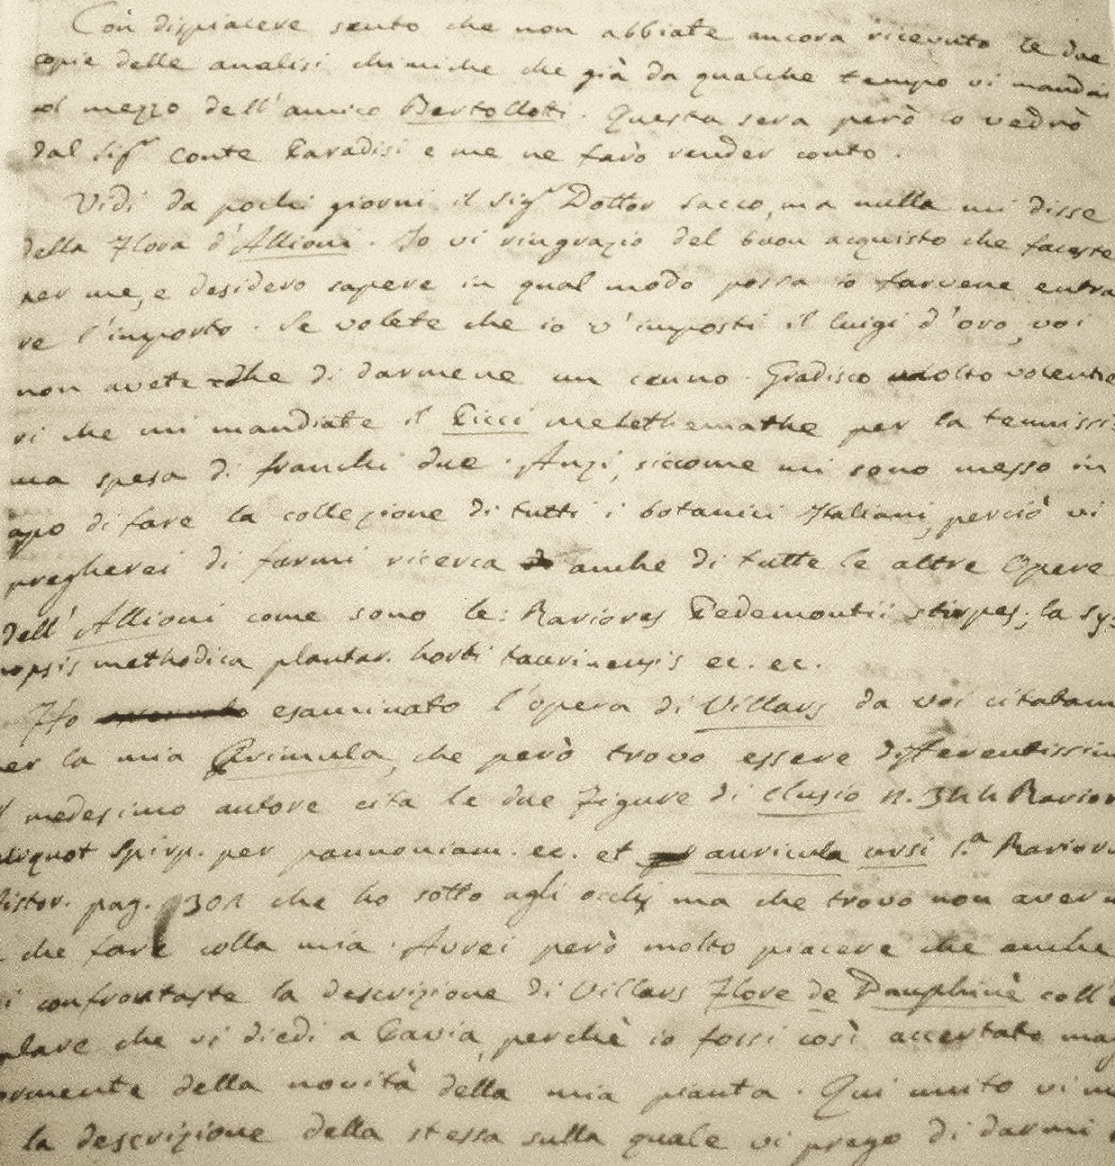 Con dispiacere sento che non abbiate ancora ricevuto le due
copie delle analisi chimiche che già da qualche tempo vi mandai
col mezzo dell'amico Bertolloti. Questa sera però lo vedrò
dal Sigr Conte Paradisi e me ne farò render conto.
Vidi da pochi giorni il Sigr Dottor Sacco, ma nulla mi disse
della Flora d'Allioni. Io vi ringrazio del buon acquisto che faceste
per me, e desidero sapere in qual modo possa io farvene entra
re l'importo. Se volete che io v'imposti il luigi d'oro, voi
non avete che di darmene un cenno. Gradisco molto volentie
ri che mi mandiate il Picci melethemathe per la tenuissi:
ma spesa di franchi due. Anzi, siccome mi sono messo in
capo di fare la collezione di tutti i botanici Italiani, perciò vi
pregherei di farmi ricerca anche di tutte le altre Opere
dell'Allioni come sono le: Rariores Pedemontii stirpes; la sy:
nopsis methodica plantar. horti taurinensis ec. ec.
Ho esaminato l'opera di Villars da voi citatam
per la mia Primula, che però trovo essere differentissim
medesimo autore cita le due figure di Clusio n. 344 Rarior
aliquot Stirp. per pannoniam. ec. et auricula ursi 1.a Rarior
histor. pag. 302 che ho sotto agli occhj ma che trovo non aver
che fare colla mia. Avrei però molto piacere che anche
confrontaste la descrizione di Villars Flore de Dauphinè coll'
plare che vi diedi a Pavia, perchè io fossi così accertato mag
iormente della novità della mia pianta. Qui unito vi
la descrizione della stessa sulla quale vi prego di darmi